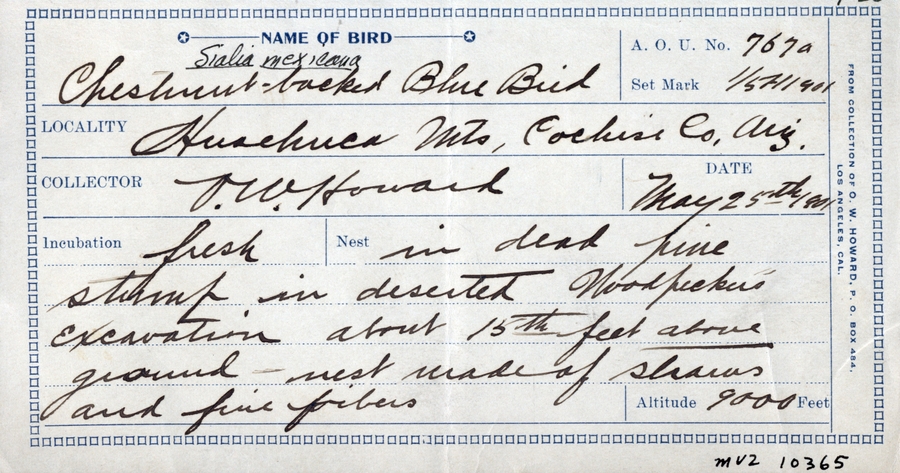 NAME OF BIRD
Sialia mexicana
Chestnut-backed Blue Bird
A. O. U. No. 767a
Set Mark 1/5 1901
LOCALITY Huachuca Mts, Cochise Co, Ariz.
COLLECTOR O. W. Howard
DATE
May 25th 1901
Incubation fresh
Nest in dead pine
stump in deserted Woodpeckers
excavation about 15th feet above
ground - nest made of straws
and fine fibers
Altitude 9000 Feet
FROM COLLECTION OF O. W. HOWARD, P. O. BOX 484,
LOS ANGELES, CAL.
MVZ 10365